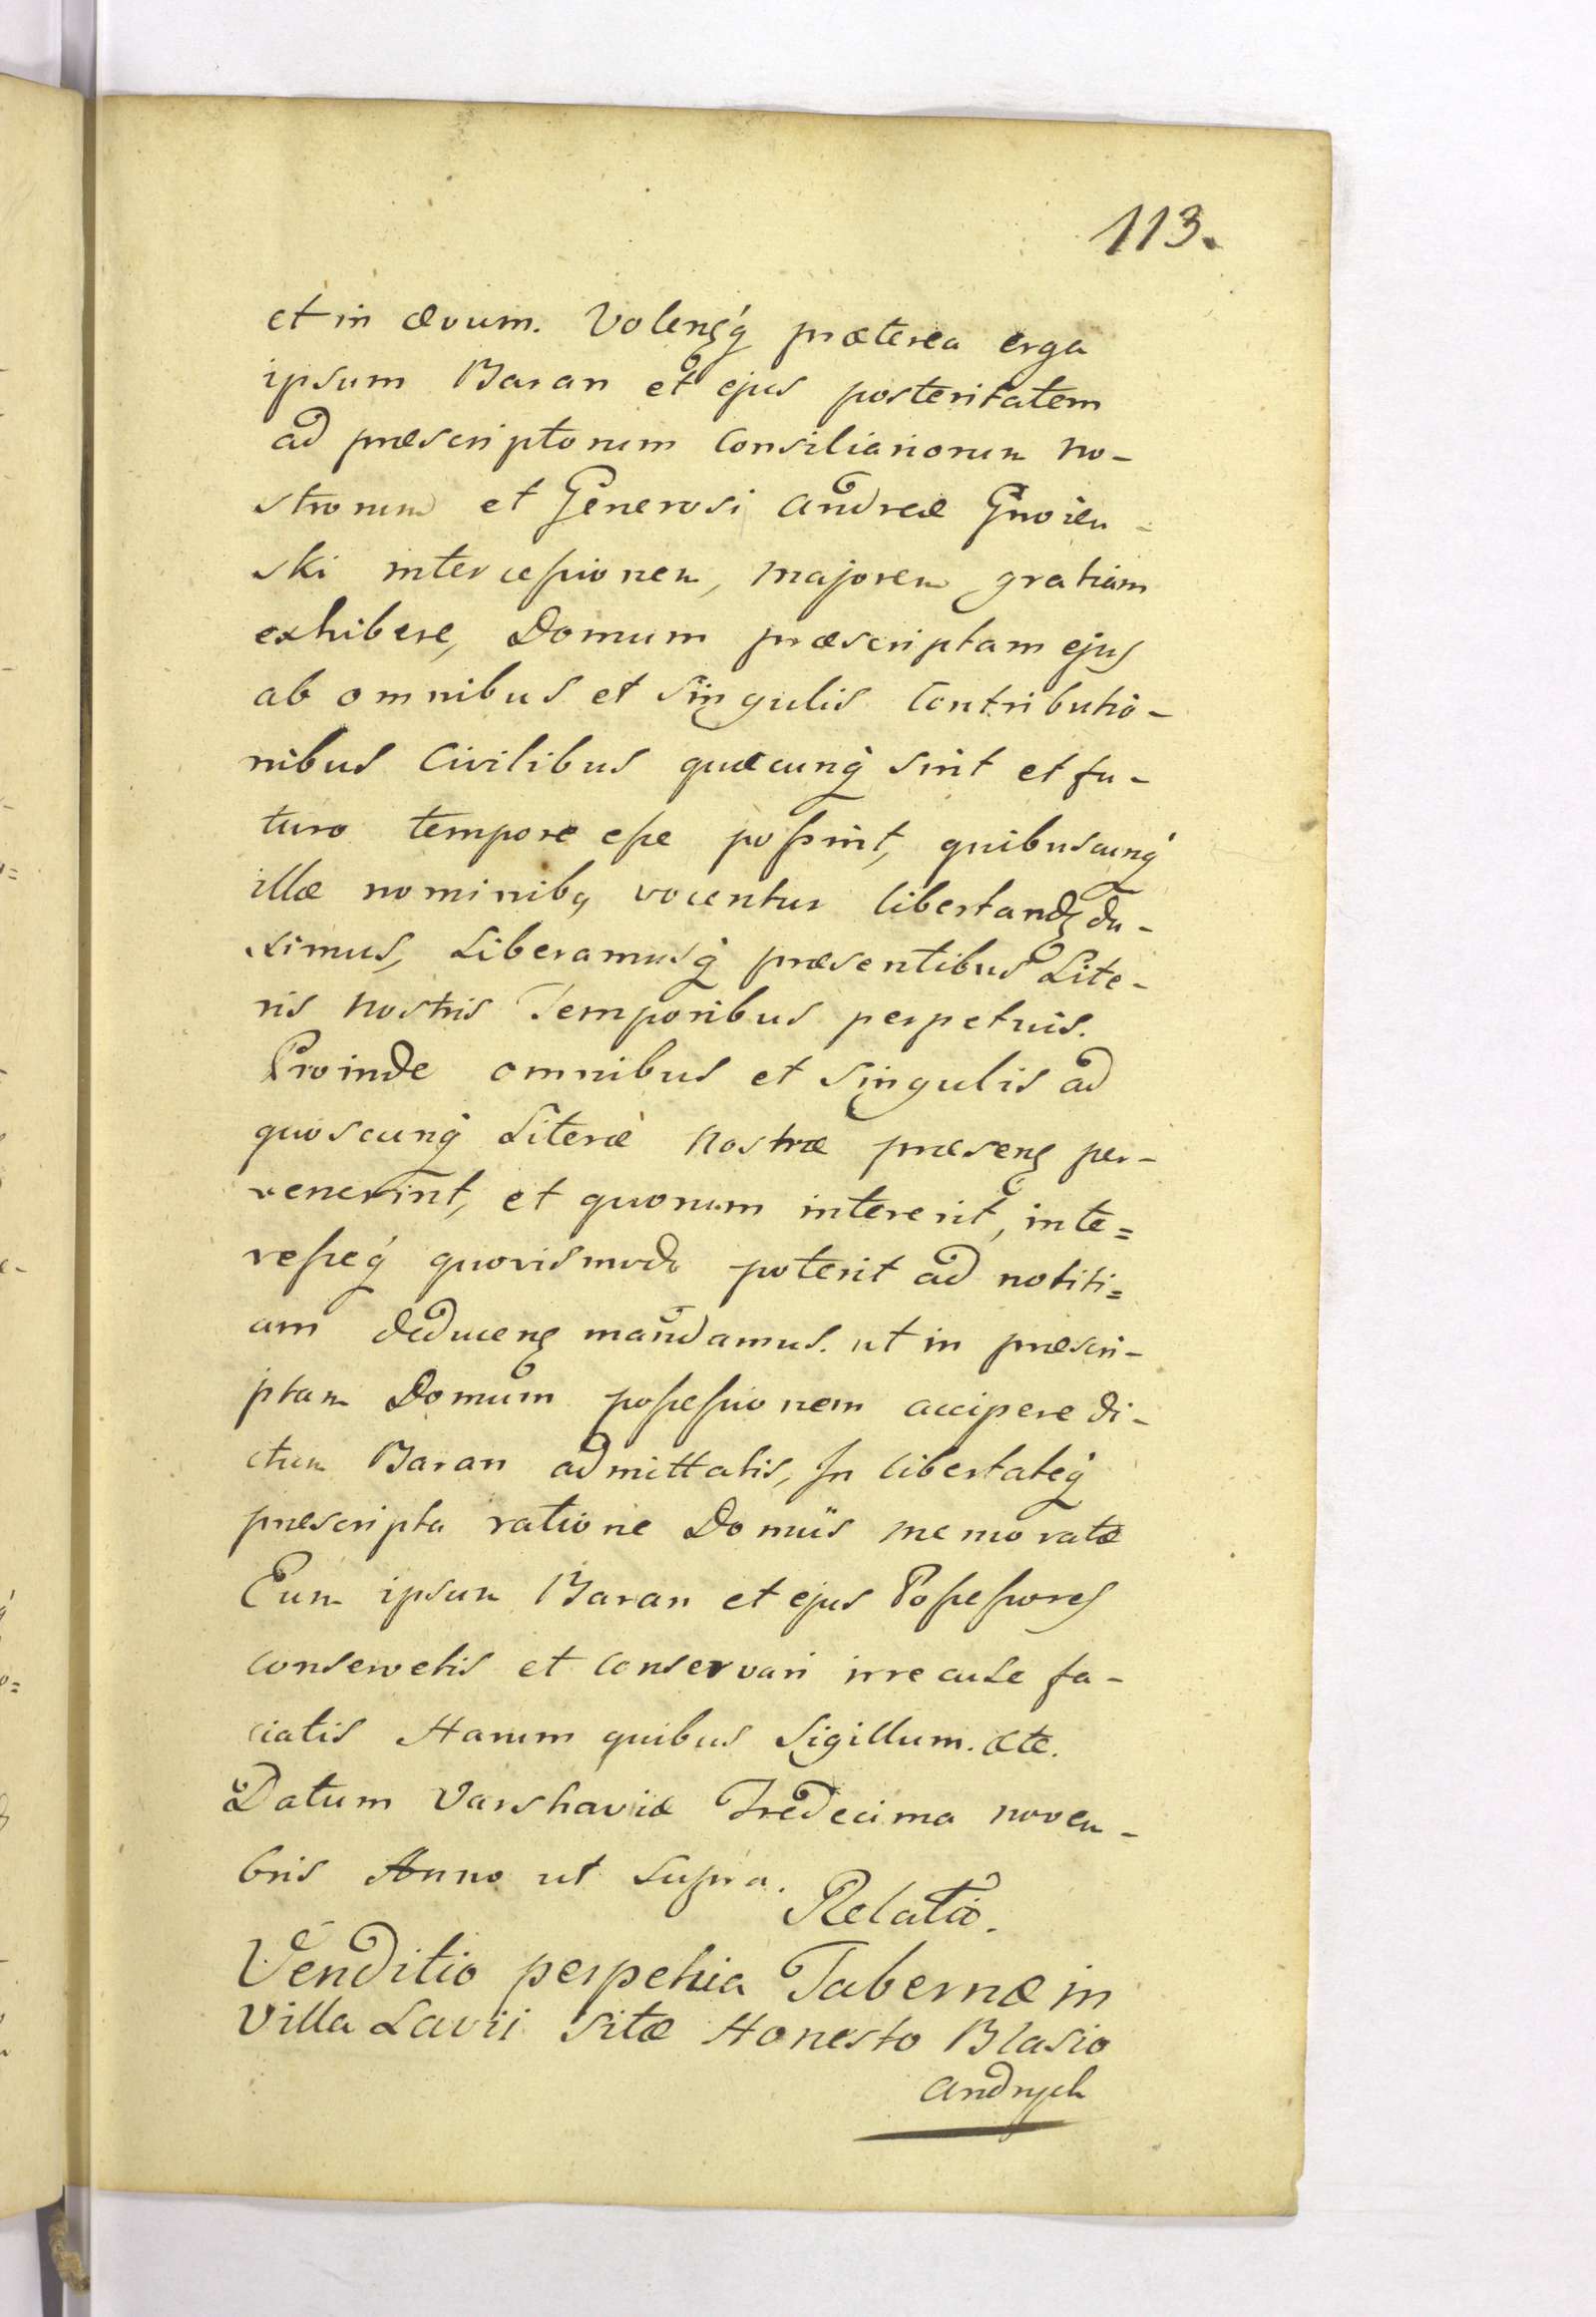 113.
et in ævum. Volensq́ præterea erga
ipsum Baran et ejus posteritatem
ad præscriptorum Consiliariorum no-
strorum et Generosi Andreæ Gnoien-
ski intercessionem, majorem gratiam
exhibere, Domum præscriptam ejus
ab omnibus et singulis Contributio-
nibus Civilibus quæcunq́ sint et fu-
turo tempore esse possint, quibuscunq́
illæ nominibq vocentur libertandą du-
ximus, Liberamusq́ præsentibus Lite-
ris nostris Temporibus perpetuis.
Proinde omnibus et singulis ad
quoscunq́ Literæ nostræ præsens per-
venerint, et quorum intererit, inte=
resseq́ quovismodo poterit ad notiti=
am deducens mandamus. ut in præscri-
ptam Domum possessionem accipere di-
ctum Baran admittatis, In libertateq́
præscripta ratione Domüs memoratæ
Eum ipsum Baran et ejus Possessores
conservetis et conservari irrecuse fa-
ciatis Harum quibus Sigillum. etc.
Datum Varshaviæ Tredecima novem-
bris Anno ut supra.
Relatio.
Venditio perpetua Tabernæ in
Villa Lavii sitæ Honesto Blasio
Andrych